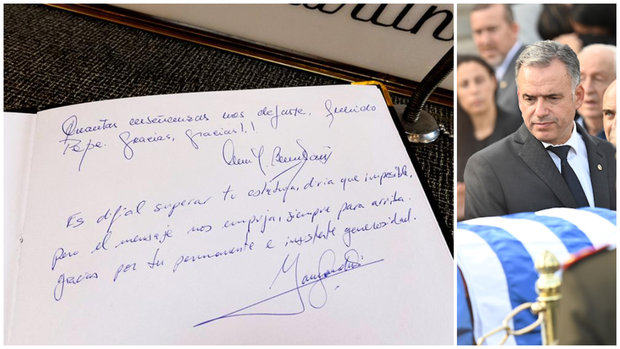 Cuantas enseñanzas nos dejaste, querido
Pepe. Gracias, gracias!!
Es difícil superar tu estatura, diría que imposible,
pero el mensaje nos empuja, siempre para arriba.
gracias por tu permanente e insistente generosidad.